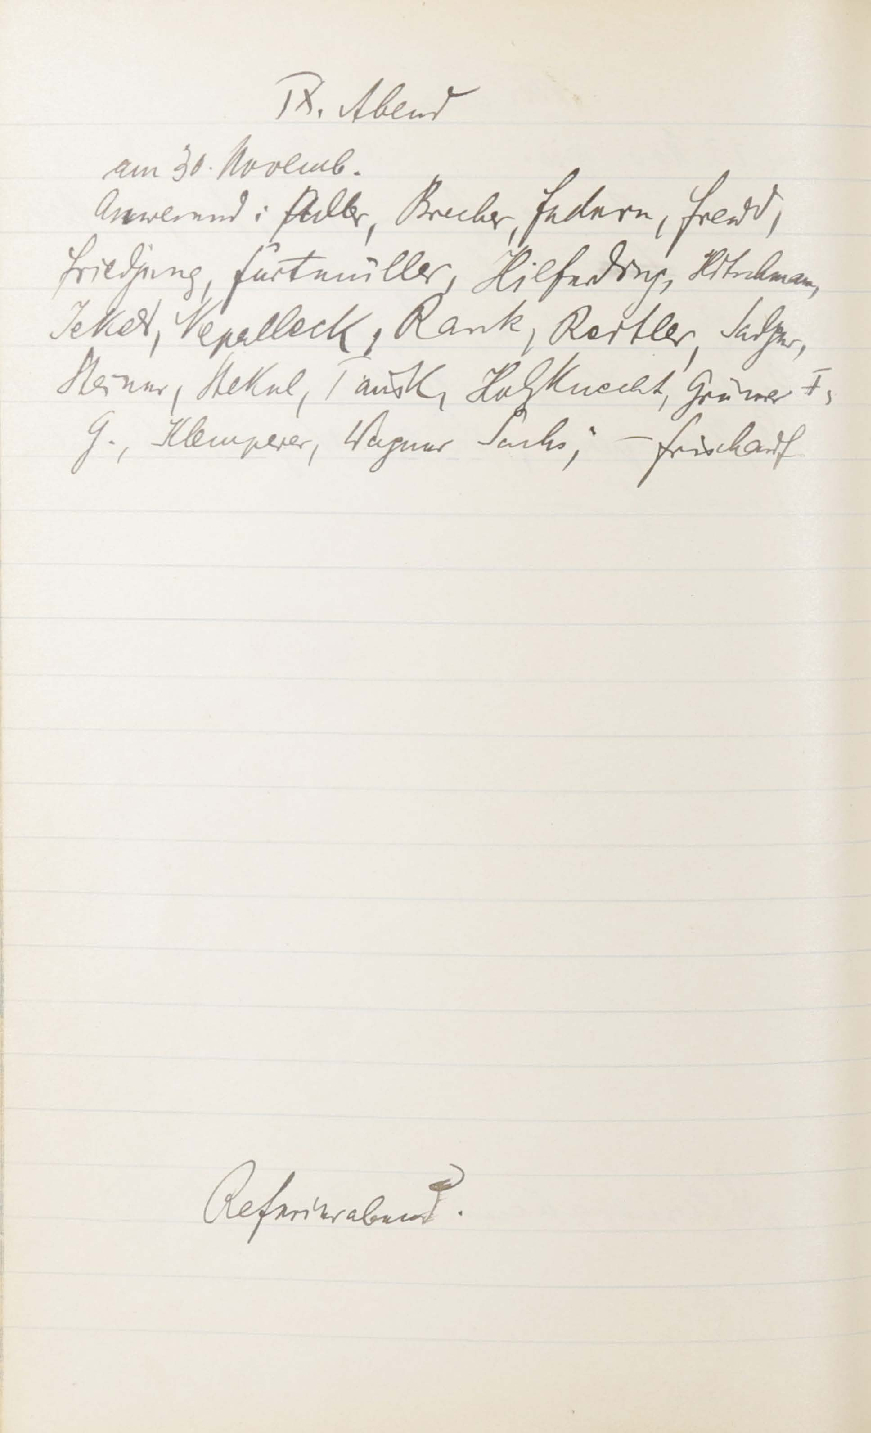 IX. Abend
am 30. Novemb.
Anwesend: Adler, Brecher, Federn, Freud,
Friedjung, Furtmüller, Hilferding, Hitschmann,
Jekels, Nepalleck, Rank, Reitler, Sadger,
Steiner, Stekel, Tausk, Holzknecht, Grüner F.,
G., Klemperer, Wagner Sachs; – Frischauf
Referierabend.